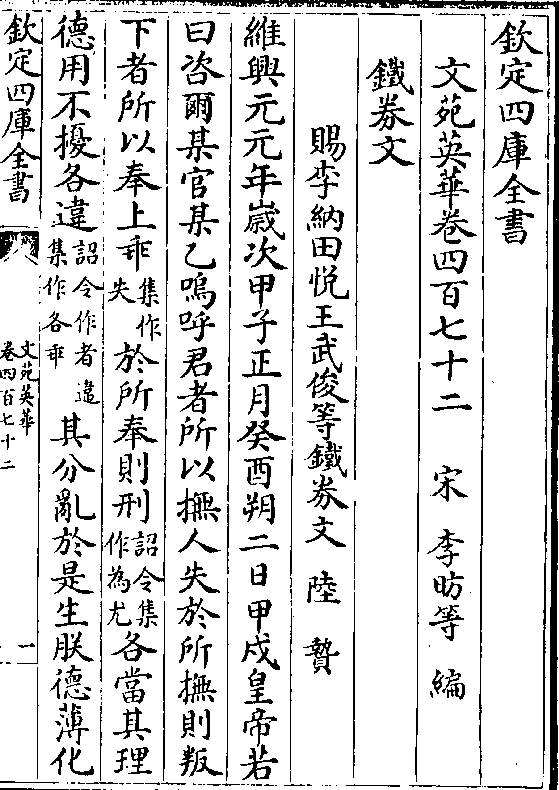 欽定四庫全書
文苑英華卷四百七十二 宋 李昉等 編
鐵券文
賜李納田悅王武俊等鐵券文 陸贄
維興元元年嵗次甲子正月癸酉朔二日甲戍皇帝若
曰咨爾某官某乙嗚呼君者所以撫人失於所撫則叛
下者所以奉上乖集作失於所奉則刑詔令集作為尤各當其理
德用不擾各違詔令作者違集作各乖其分亂於是生朕德薄化
欽定四庫全書
文苑英華
卷四百七十二
一